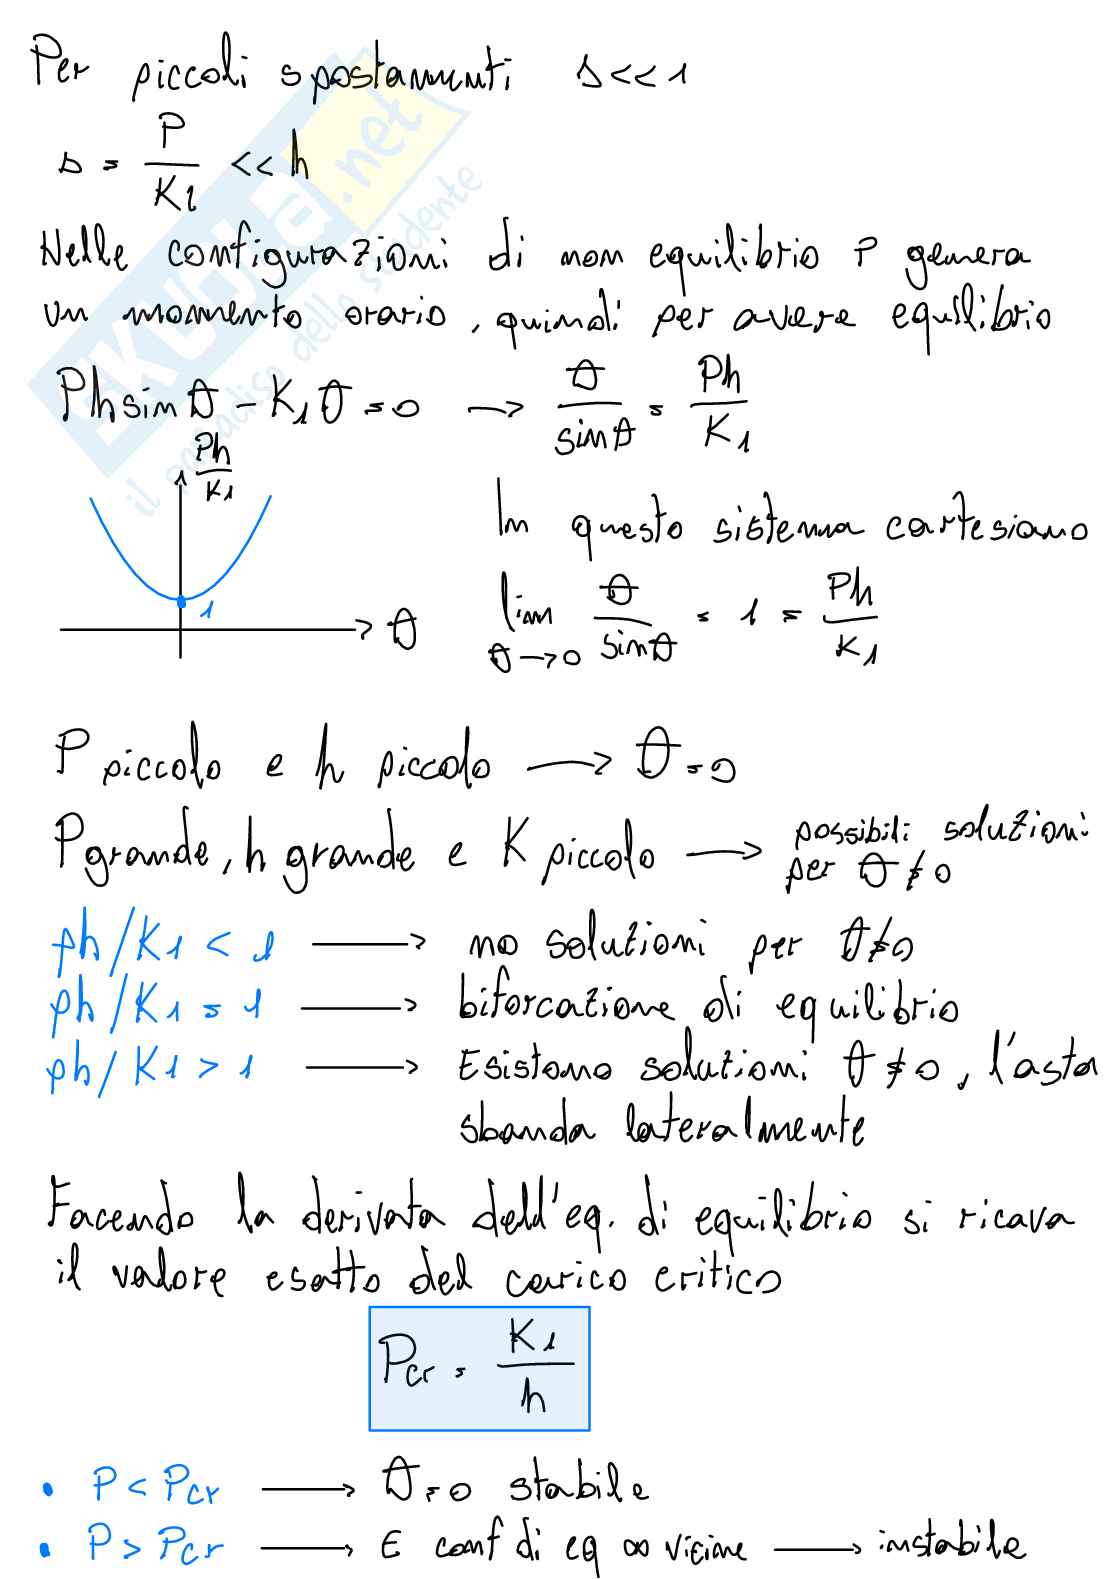 Per piccoli spostamenti s<<1
s = P/Kl << h
Nelle configurazioni di non equilibrio P genera
un momento orario, quindi per avere equilibrio
Ph sinθ - K1θ = 0 → θ/sinθ = Ph/K1
Ph/K1
1
θ
In questo sistema cartesiano
lim θ→0 θ/sinθ = 1 = Ph/K1
P piccolo e h piccolo → θ=0
P grande, h grande e K piccolo → possibili soluzioni
per θ≠0
ph/K1 < 1 → no soluzioni per θ≠0
ph/K1 = 1 → biforcazione di equilibrio
ph/K1 > 1 → Esistono soluzioni θ≠0, l'asta
sbanda lateralmente
Facendo la derivata dell'eq. di equilibrio si ricava
il valore esatto del carico critico
Pcr = K1/h
• P < Pcr → θ=0 stabile
• P > Pcr → E conf di eq ∞ vicine → instabile
SKUOLA.net
il paradiso dello studente